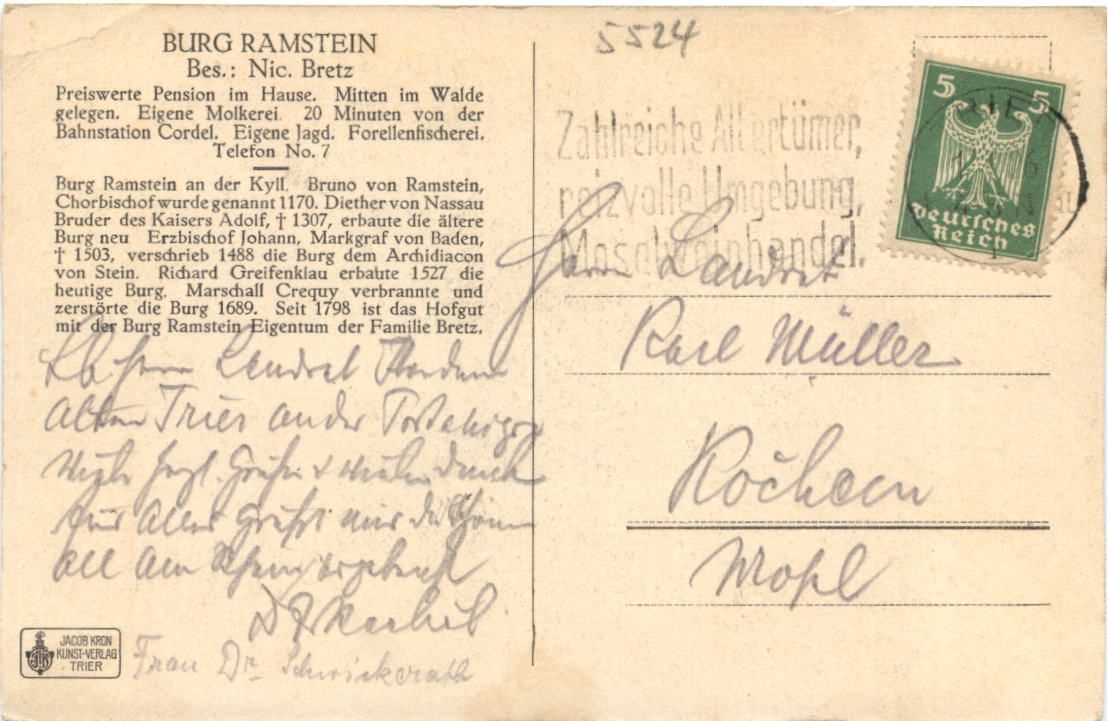 BURG RAMSTEIN
Bes.: Nic. Bretz
Preiswerte Pension im Hause. Mitten im Walde
gelegen. Eigene Molkerei. 20 Minuten von der
Bahnstation Cordel. Eigene Jagd. Forellenfischerei.
Telefon No. 7
Burg Ramstein an der Kyll. Bruno von Ramstein,
Chorbischof wurde genannt 1170. Diether von Nassau
Bruder des Kaisers Adolf, † 1307, erbaute die ältere
Burg neu Erzbischof Johann, Markgraf von Baden,
† 1503, verschrieb 1488 die Burg dem Archidiacon
von Stein. Richard Greifenklau erbaute 1527 die
heutige Burg. Marschall Crequy verbrannte und
zerstörte die Burg 1689. Seit 1798 ist das Hofgut
mit der Burg Ramstein Eigentum der Familie Bretz.
Herrn Landrat
Trier an der
für Alles
am Rhein
Frau Dr. Schwickerath
JACOB KRON
KUNST-VERLAG
TRIER
5524
Zahlreiche Altertümer,
reizvolle Umgebung,
Moselweinhandel.
5 5
Deutsches
Reich
Herrn Landrat
Karl Müller
Kochem
Mosel